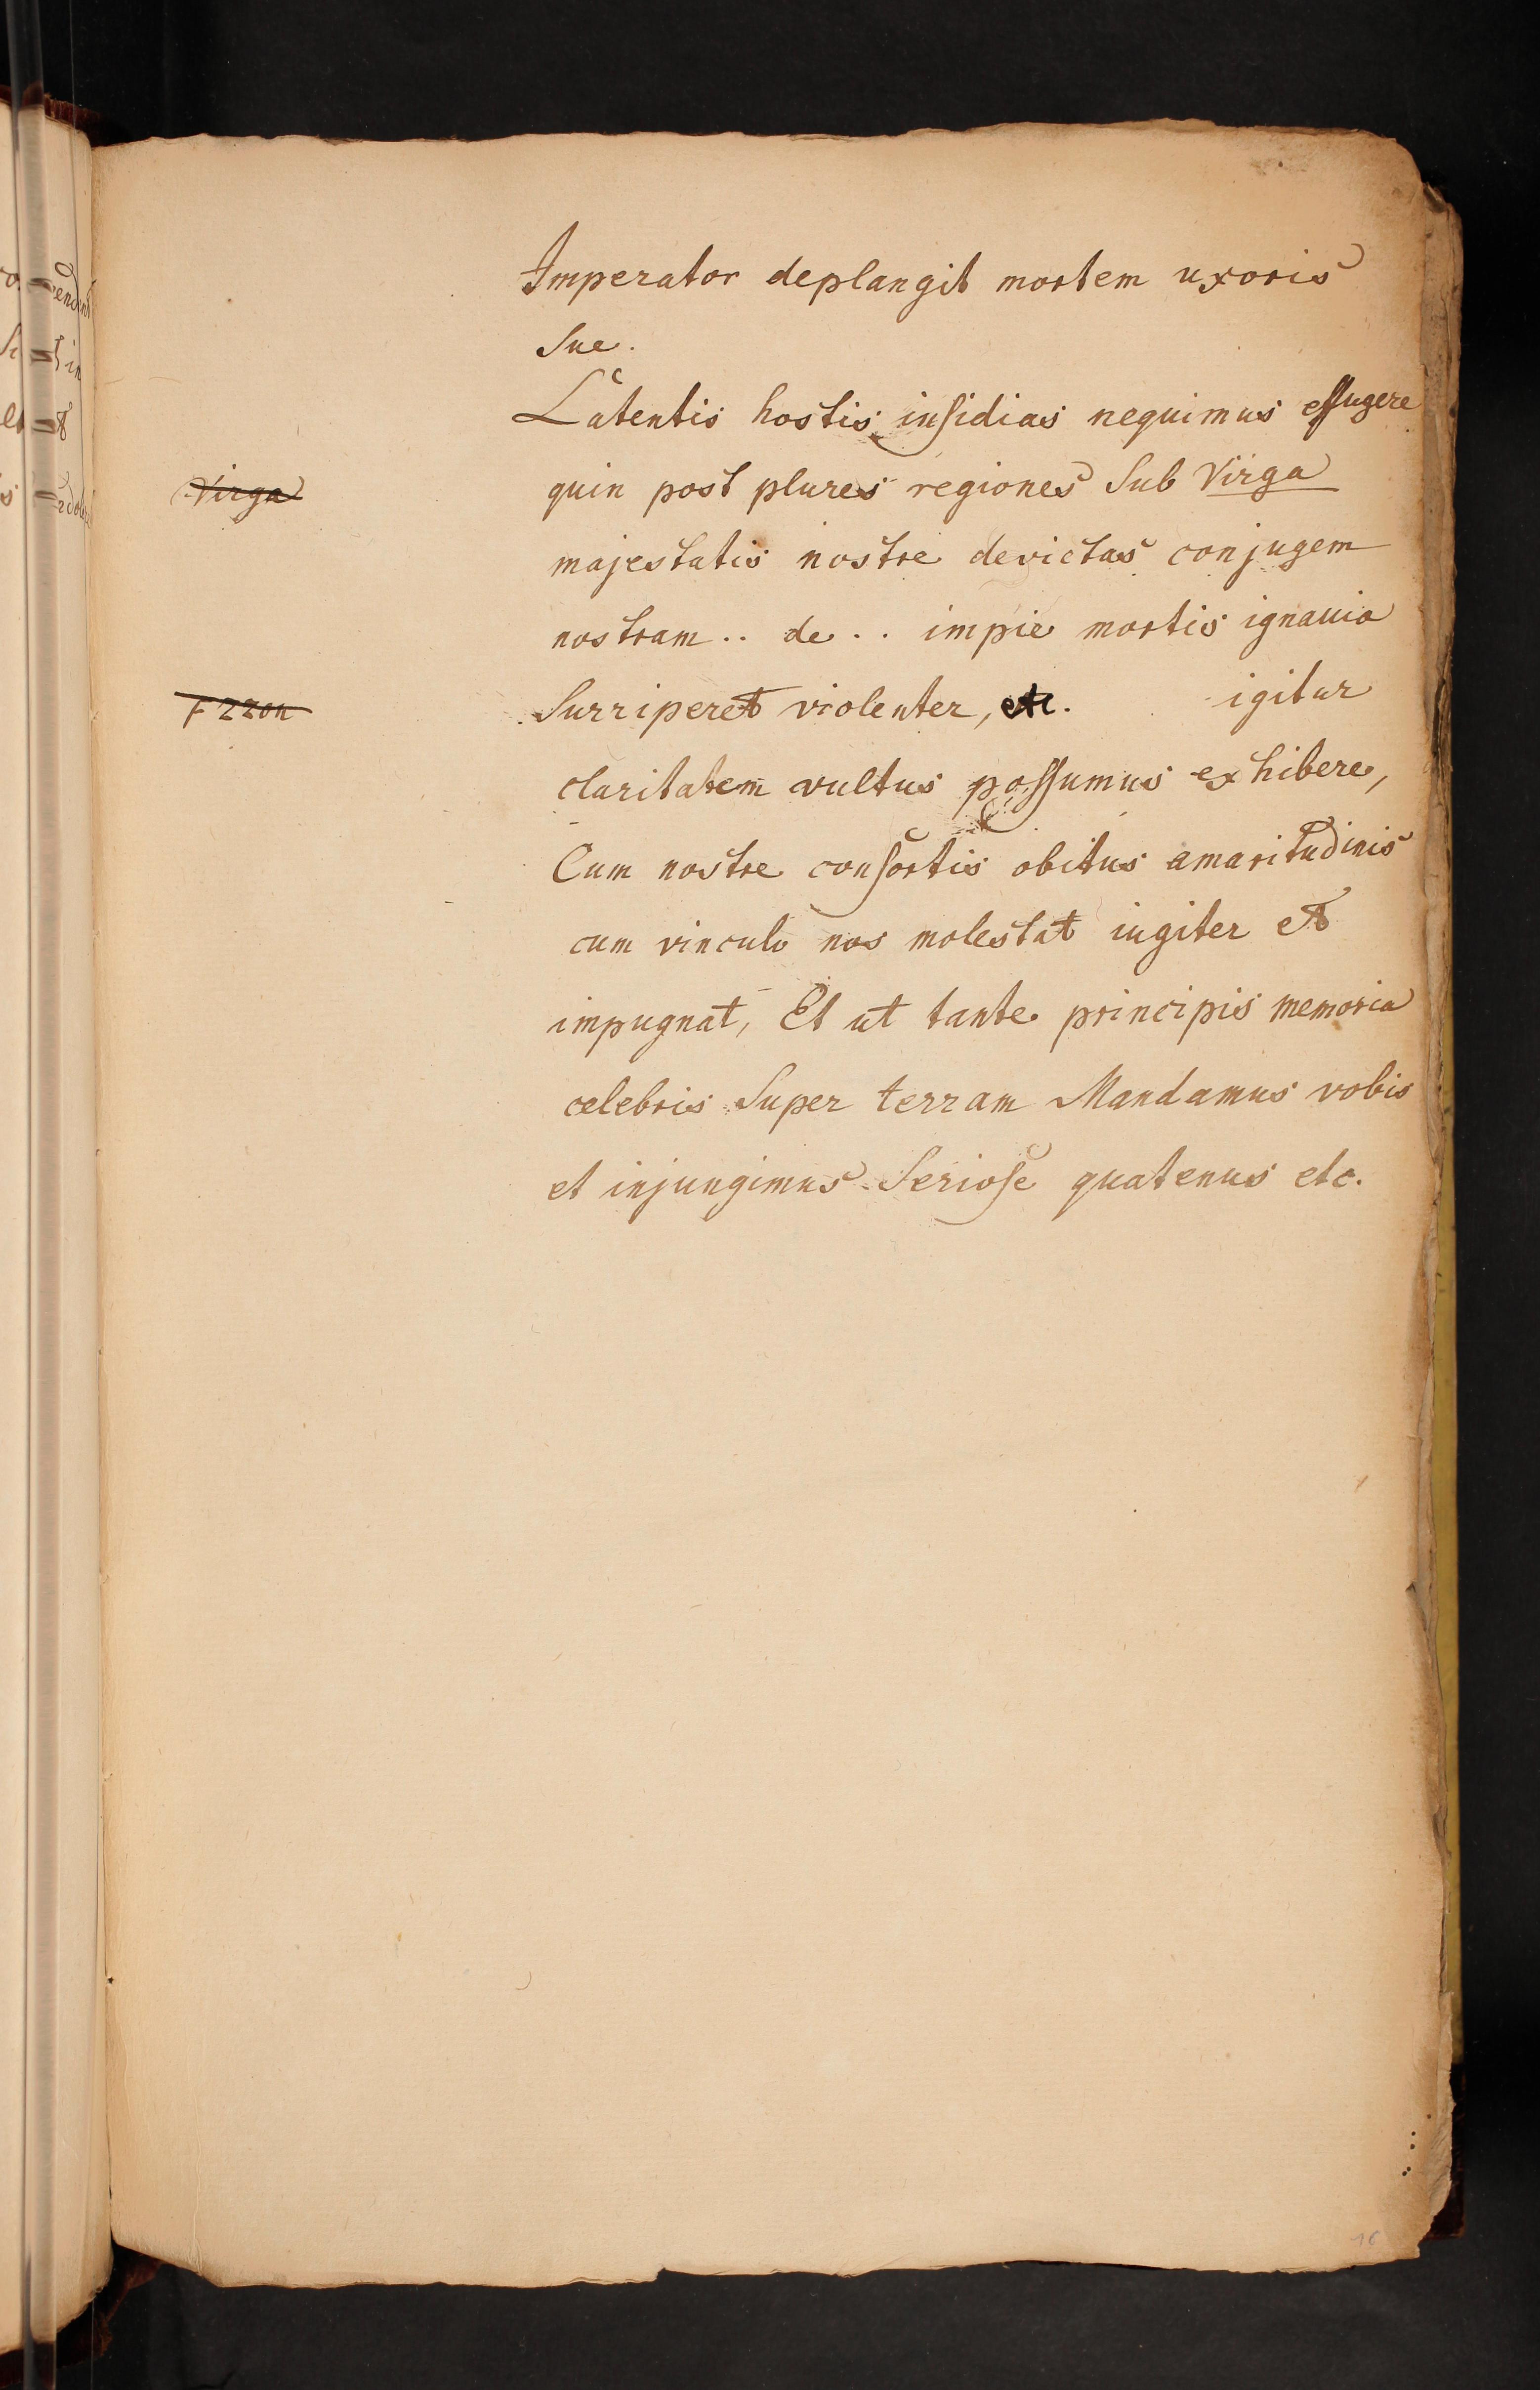 Imperator deplangit mortem uxoris
sue.
Latentis hostis insidias nequimus effugere
Virga
quin post plures regiones sub Virga
majestatis nostre devictas conjugem
nostram .. de .. impie mortis ignauia
surriperet violenter, etc. igitur
claritatem vultus possumus exhibere,
Cum nostre consortis obitus amaritudinis
cum vinculo nos molestat iugiter et
impugnat, Et ut tante principis memoria
celebris super terram Mandamus vobis
et injungimus seriose quatenus etc.
16